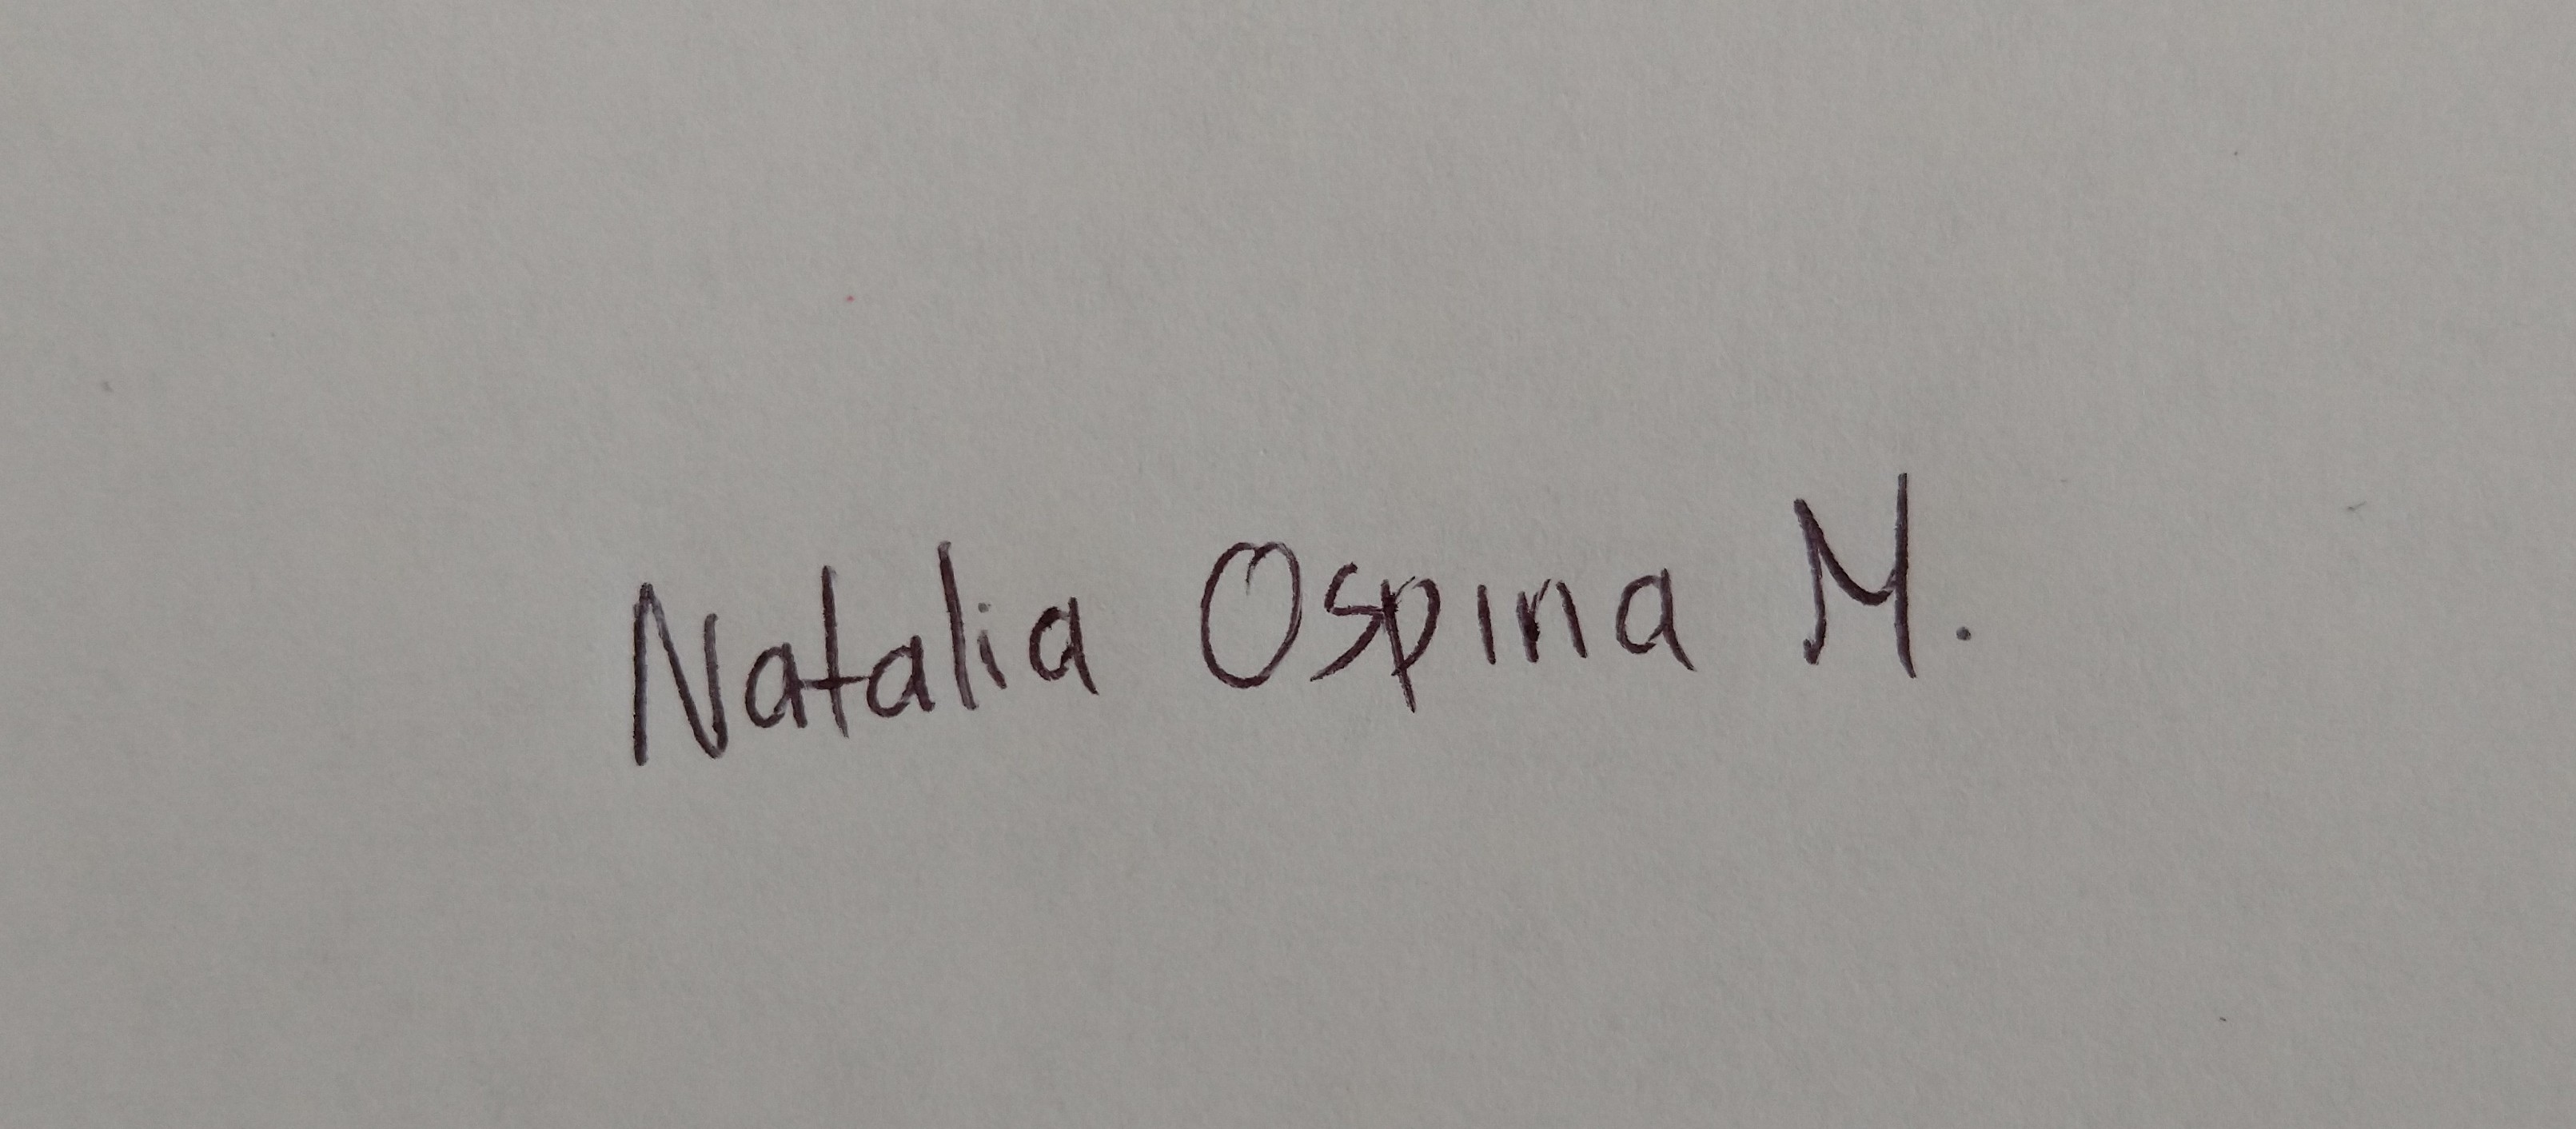 Natalia Ospina M.